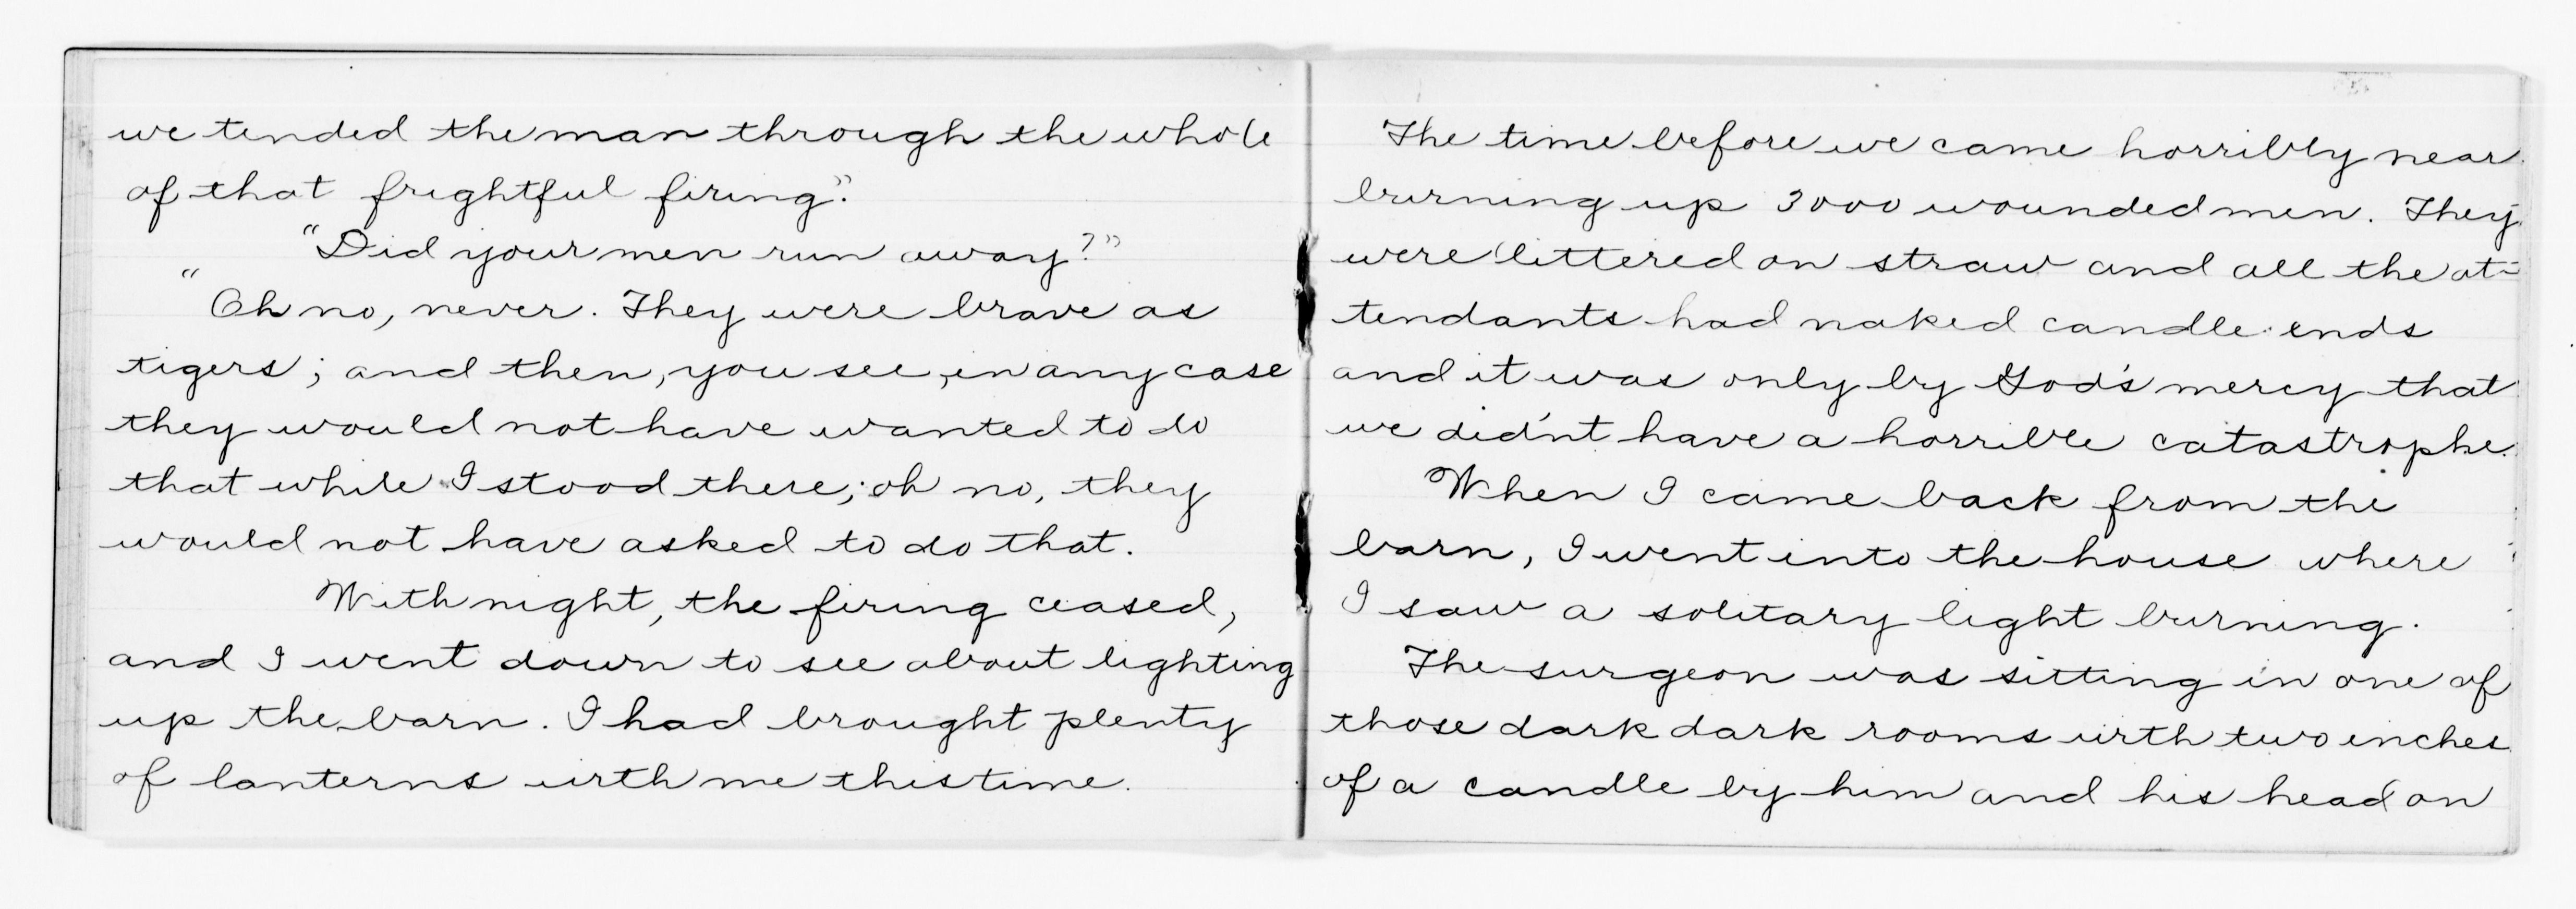 we tended the man through the whole
of that frightful firing."
"Did your men run away?"
"Oh no, never. They were brave as
tigers; and then, you see, in any case
they would not have wanted to do
that while I stood there; oh no, they
would not have asked to do that.
With night, the firing ceased,
and I went down to see about lighting
up the barn. I had brought plenty
of lanterns with me this time.
The time before we came horribly near
burning up 3000 wounded men. They
were littered on straw and all the at-
tendants had naked candle-ends
and it was only by God's mercy that
we did'nt have a horrible catastrophe.
When I came back from the
barn, I went into the house where
I saw a solitary light burning.
The surgeon was sitting in one of
those dark dark rooms with two inches
of a candle by him and his head on